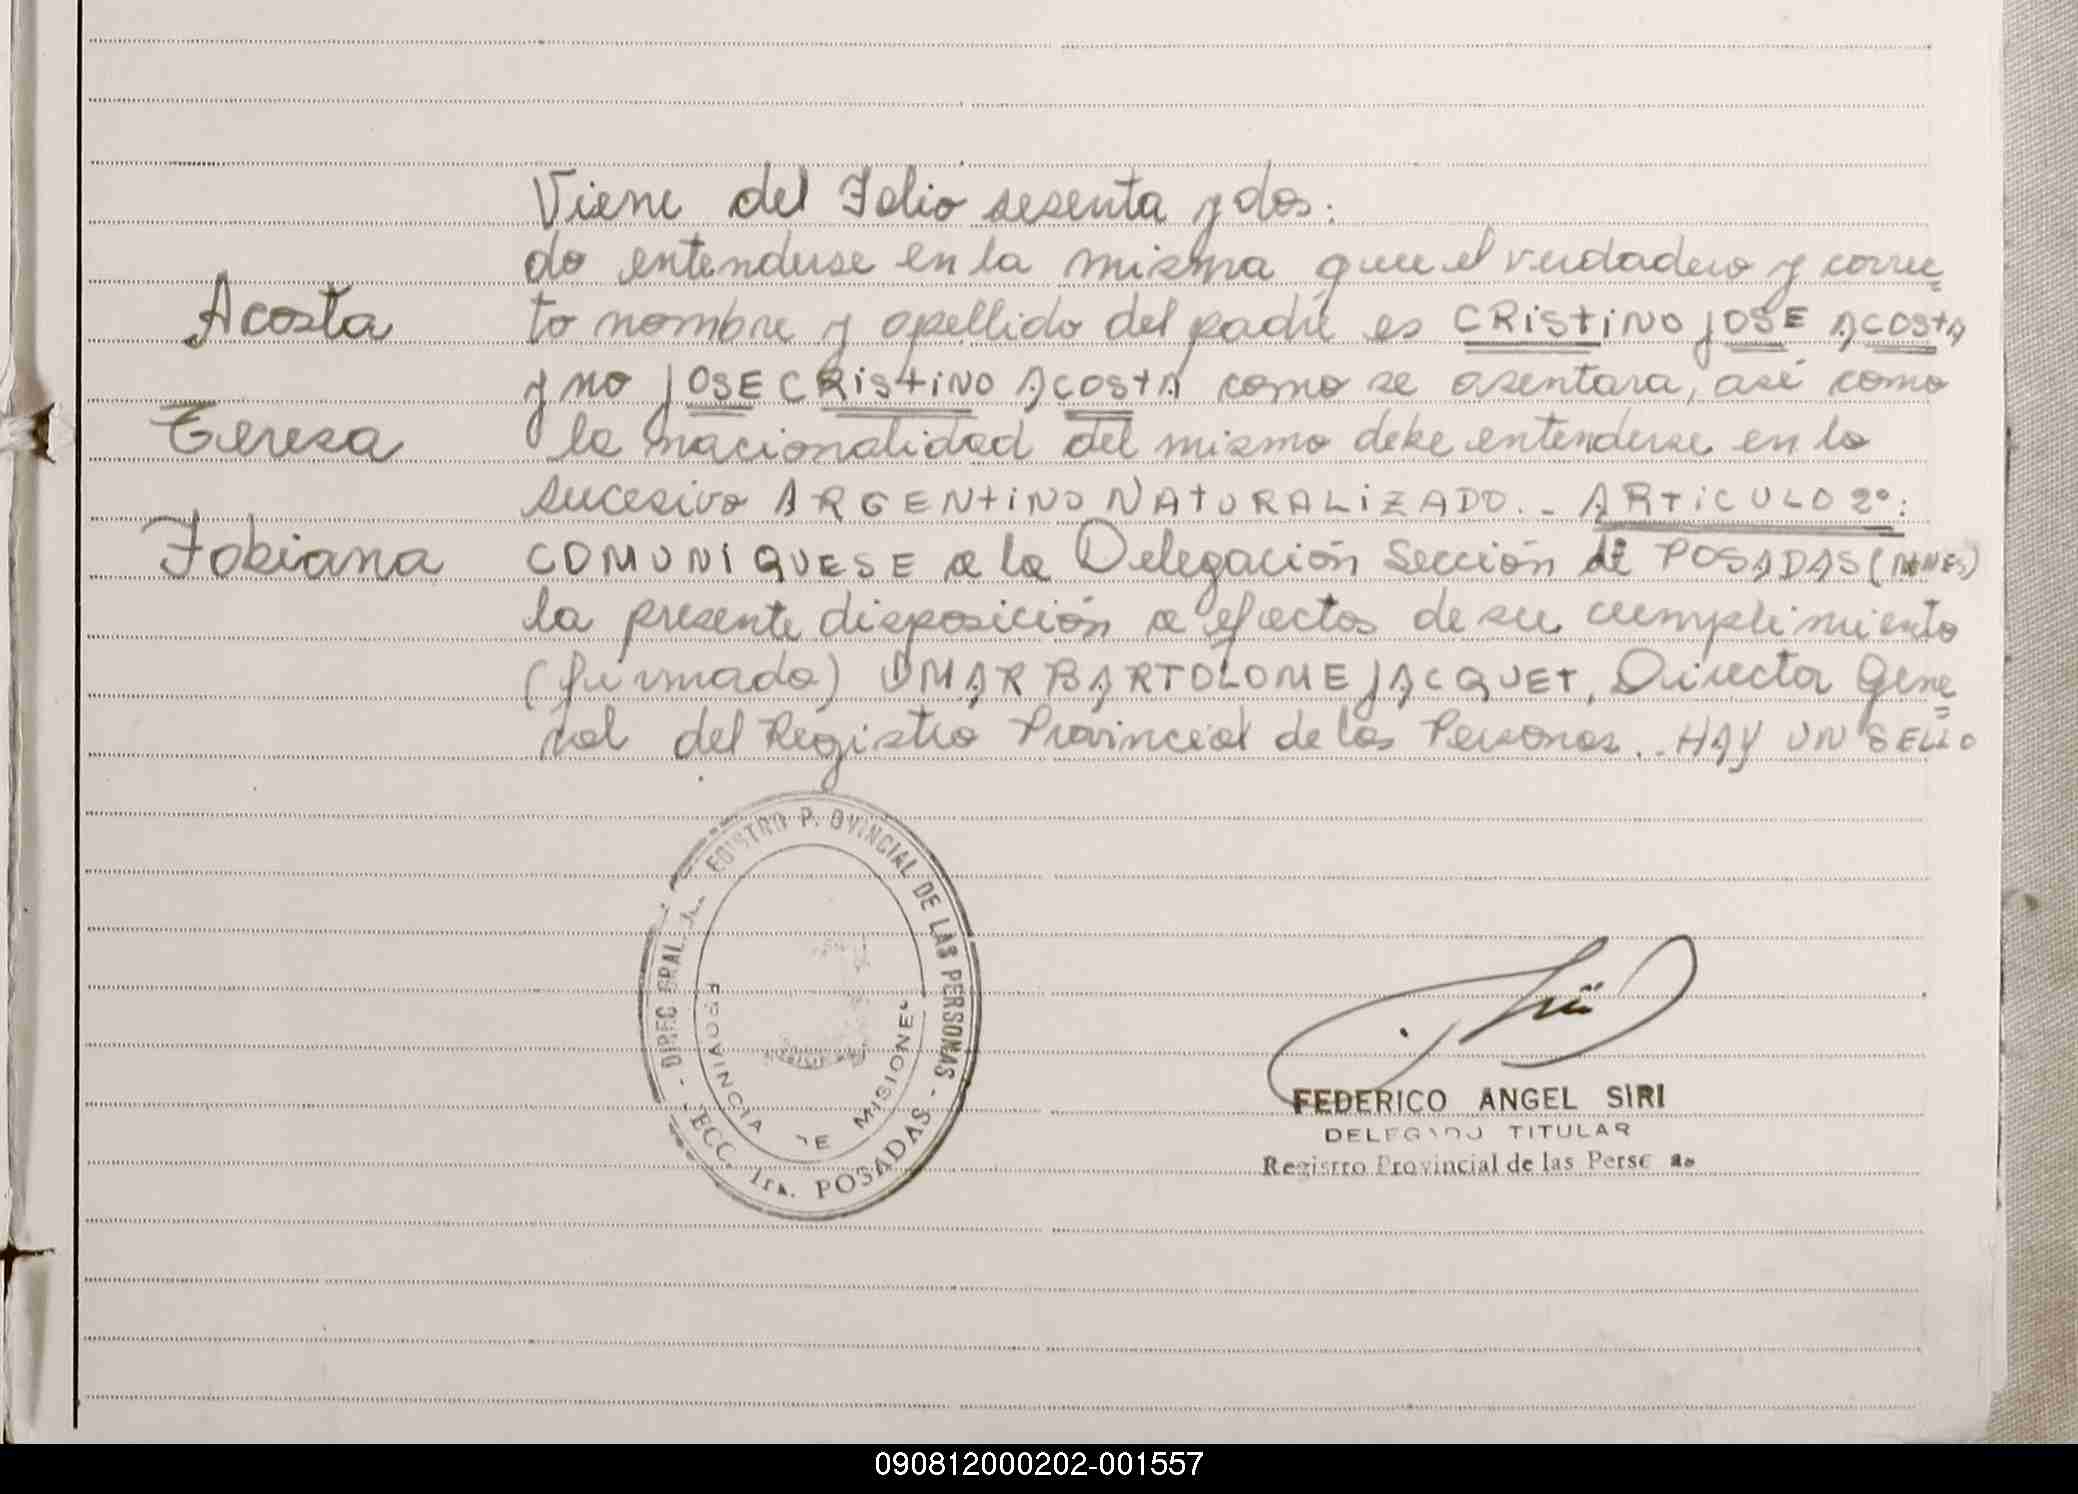 Viene del Folio sesenta y dos:
do entenderse en la misma que el verdadero y correc=
Acosta
to nombre y apellido del padre es CRISTINO JOSE ACOSTA
y no JOSE CRISTINO ACOSTA como se asentara, asi como
Teresa
la nacionalidad del mismo debe entenderse en lo
sucesivo ARGENTINO NATURALIZADO.- ARTICULO 2º:
Fabiana
COMUNIQUESE a la Delegación Sección de POSADAS
la presente disposición a efectos de su cumplimiento
(firmado) OMAR BARTOLOME JACQUET, Director Gene=
ral del Registro Provincial de las Personas.. HAY UN SELLO
DIREC GRAL. EGISTRO P. OVINCIAL DE LAS PERSONAS -
PROVINCIA DE MISIONES
ECC. 1ra. POSADAS -
FEDERICO ANGEL SIRI
DELEGADO TITULAR
Registro Provincial de las Persc as
090812000202-001557